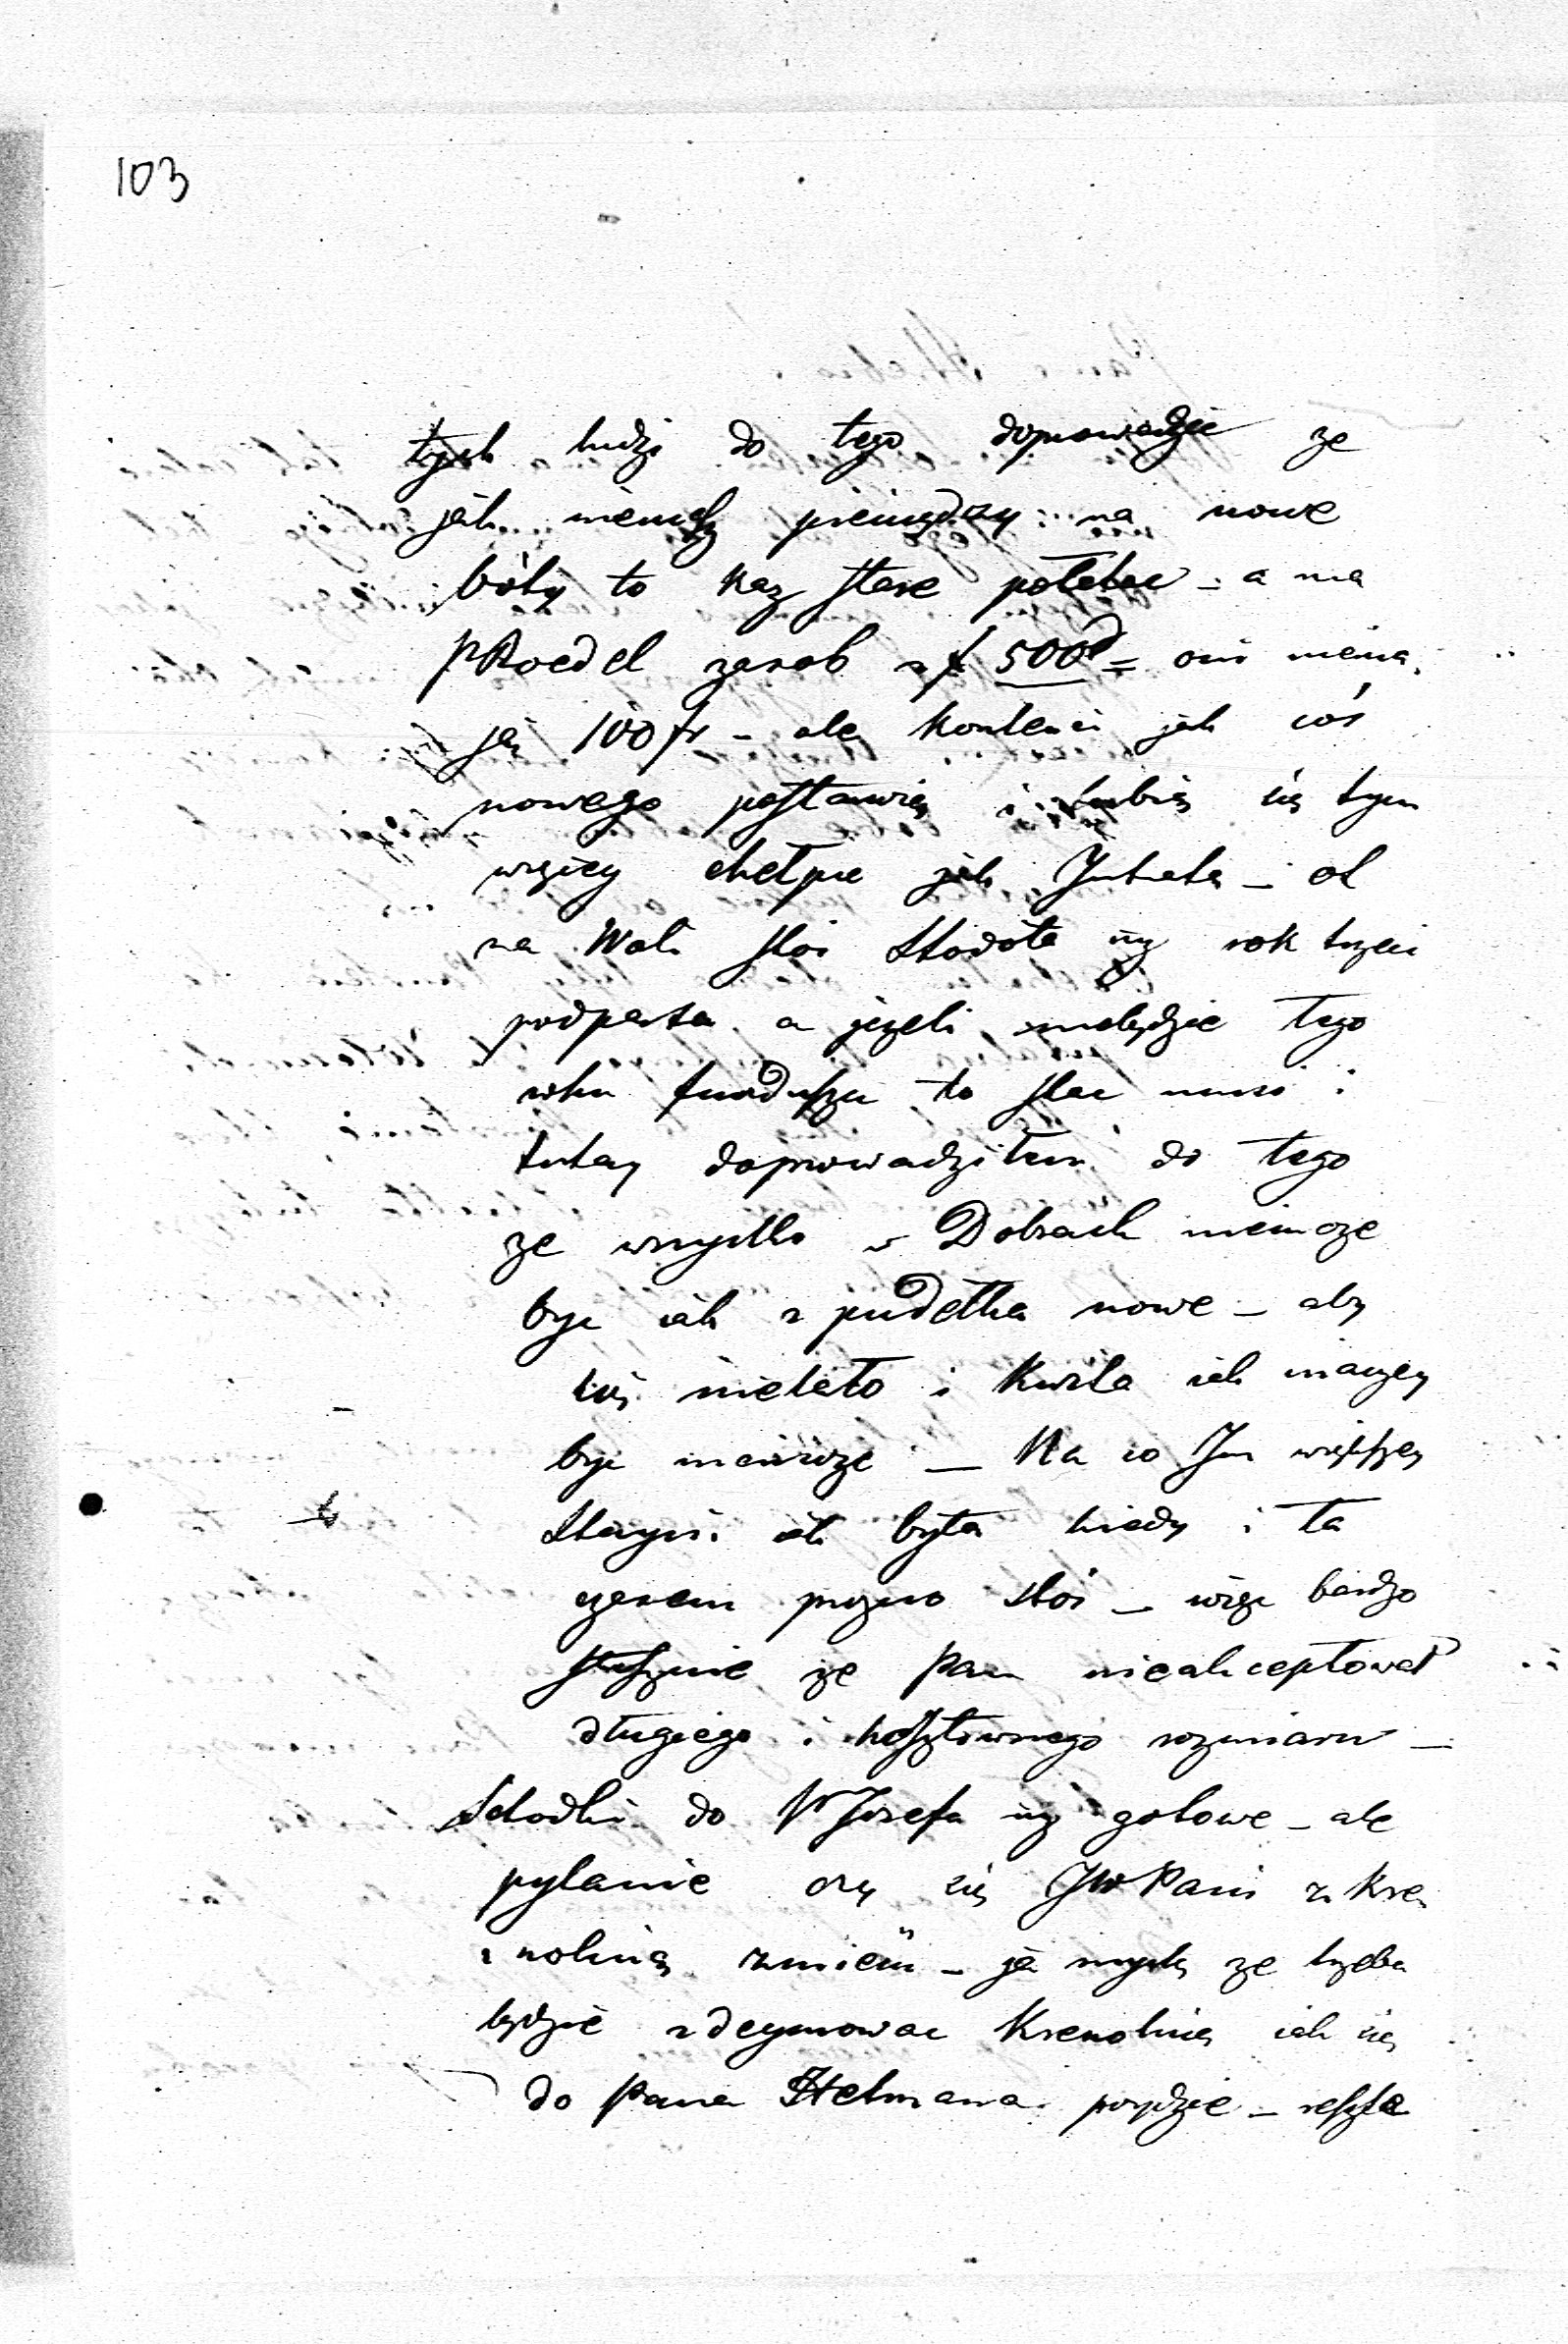 103
tych ludzi do tego doprowadzić ze
jak niemasz pieniędzy na nowe
bóty to kaz stare połatac – a ma
PRoedel zarob z f 500 = oni niema
ją 100 fr – ale kontenci jak coś
nowego postawią i lubią się tym
więcey chełpic jak – ot
na Woli stoi Stodoła iuz rok trzeci
podparta a jezeli niebędzie tego
roku funduszu to stac musi i
tutay doprowadziłem do tego
ze wszystko w Dobrach niemoze
byc iak z pudełka nowe – aby
się nielało i kwita iak inaczey
byc niemoze – Na co Im większey
Stayni iak była kiedy i ta
czasem prozno stoi – więc bardzo
słusznie ze Pan nieakceptował
długiego i kosztownego rozmiaru –
Schodki do P Jozefa iuz gotowe – ale
pytanie czy się JW Pani z kre
nolinią zmieści – ja myslę ze trzeba
będzie zdeymowac Krenolinią iak się
do Pana Hetmana poydzie – reszta